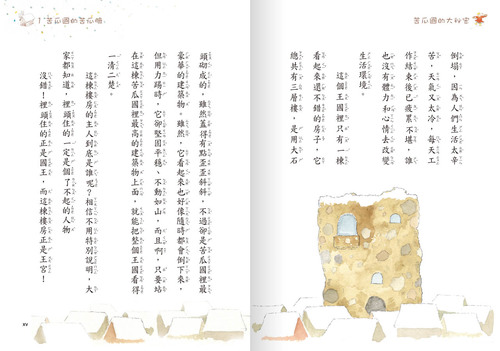 苦瓜國的大秘密
倒塌，因為人們生活太辛
苦，天氣又太冷，每天工
作結束後已疲累不堪，誰
也沒有體力和心情去改變
生活環境。
這個王國裡只有一棟
看起來還不錯的房子，它
總共有三層樓，是用大石
1 苦瓜國的苦瓜臉
頭砌成的，雖然蓋得有點歪歪斜斜，不過卻是苦瓜國裡最
豪華的建築物。雖然，它看起來也好像隨時都會倒下來，
但用力踢時，它卻堅固平穩、不動如山，而且啊，只要站
在這棟苦瓜國裡最高的建築物上面，就能把整個王國看得
一清二楚。
這棟樓房的主人到底是誰呢？相信不用特別說明，大
家都知道，裡頭住的一定是個了不起的人物
沒錯！裡頭住的正是國王，而這棟樓房正是王宮！